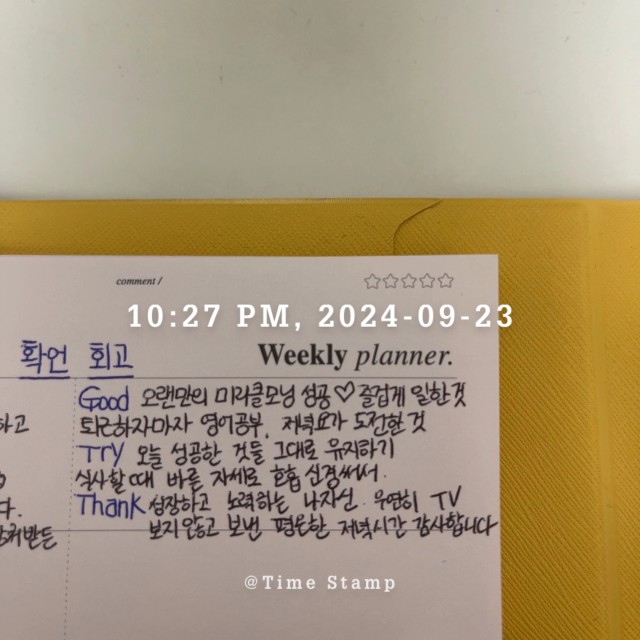 comment / ☆☆☆☆☆
10:27 PM, 2024-09-23
확언 회고 Weekly planner.
Good 오랜만의 미라클모닝 성공♡ 즐겁게 일한것
하고 퇴근하자마자 영어공부, 저녁요가 도전한 것
Try 오늘 성공한 것들 그대로 유지하기
식사할때 바른 자세로 호흡 신경써서.
다. Thank 성장하고 노력하는 나자신. 우연히 TV
받은 보지않고 보낸 평온한 저녁시간 감사합니다
@Time Stamp